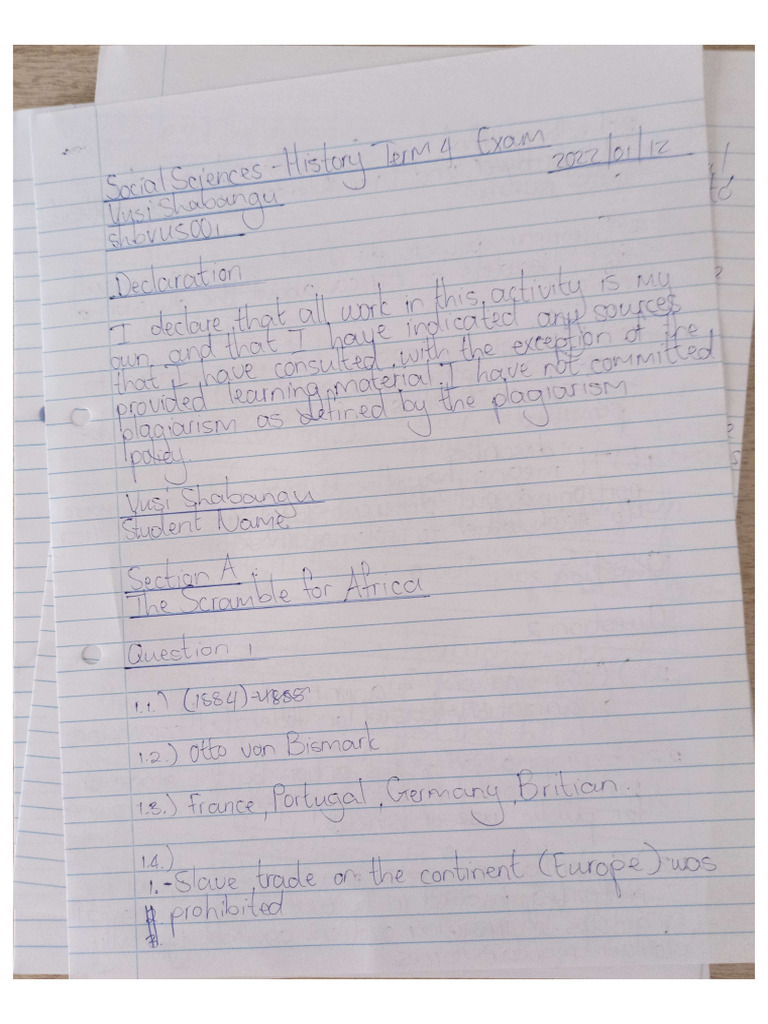 Social Sciences - History Term 4 Exam
2022/01/12
Vusi Shabangu
shbvus001
Declaration
I declare that all work in this activity is my
own, and that I have indicated any sources
that I have consulted, with the exception of the
provided learning material. I have not committed
plagiarism as defined by the plagiarism
policy
Vusi Shabangu
Student Name
Section A
The Scramble for Africa
Question 1
1.1.) (1884)
1.2.) Otto von Bismark
1.3.) France, Portugal, Germany, Britian.
1.4.)
1. - Slave trade on the continent (Europe) was
prohibited